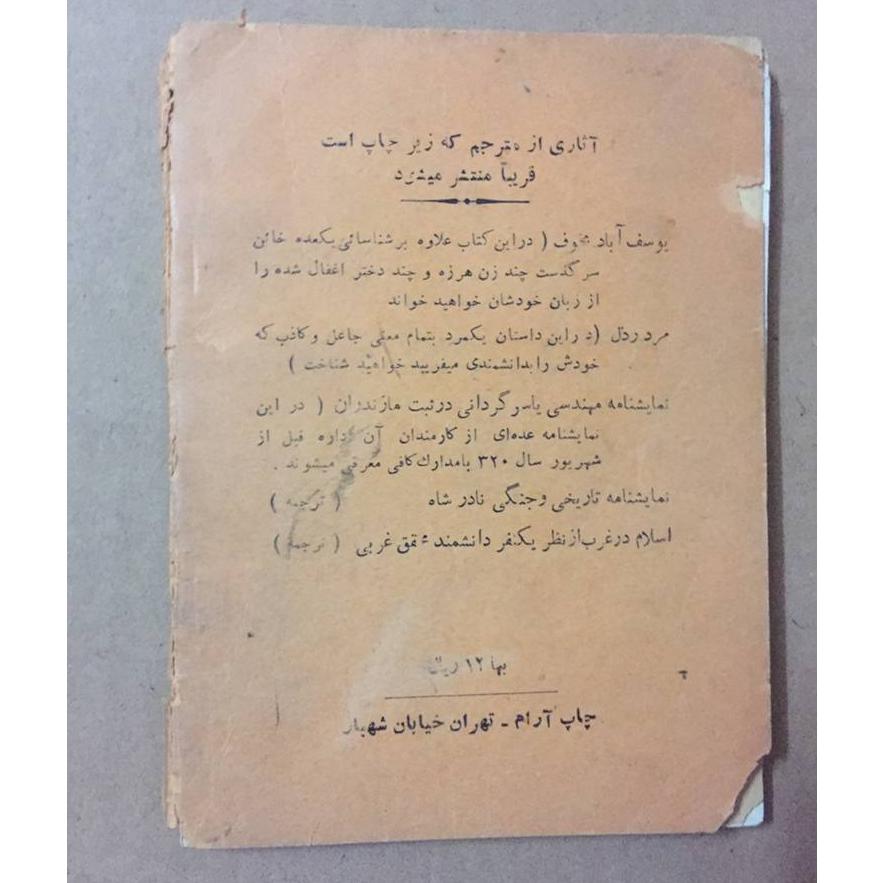 آثاری از مترجم که زیر چاپ است
قریباً منتشر میشود
یوسف آباد مخوف ( در این کتاب علاوه بر شناسائی یکعده خائن
سرگذست چند زن هرزه و چند دختر اغفال شده را
از زبان خودشان خواهید خواند
مرد رذل ( در این داستان یکمرد بتمام معنی جاعل و کاذب که
خودش را بدانشمندی میفریبد خواهید شناخت )
نمایشنامه مهندسی یا سرگردانی در ثبت مازندران ( در این
نمایشنامه عده‌ای از کارمندان آن اداره قبل از
شهریور سال ۳۲۰ با مدارك کافی معرفی میشوند .
نمایشنامه تاریخی و جنگی نادر شاه ( ترجمه )
اسلام در غرب از نظر یکنفر دانشمند محقق غربی ( ترجمه )
بها ۱۲ ریال
چاپ آرام - تهران خیابان شهباز